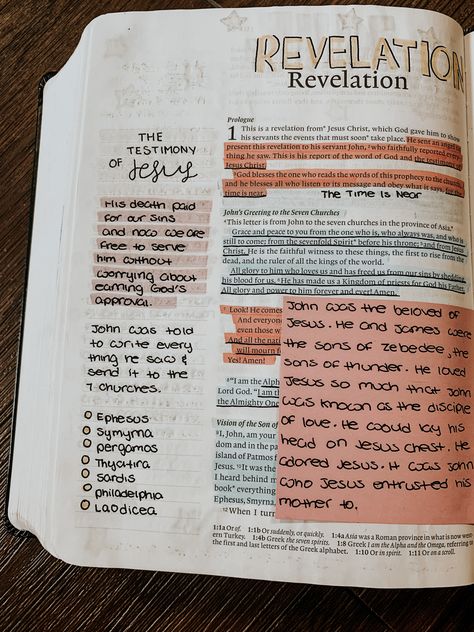 REVELATION
Revelation
THE
TESTIMONY
OF Jesus
His death paid
for our sins
and now we are
free to serve
him without
worrying about
earning God's
approval.
John was told
to write every
thing he saw &
send it to the
7 churches.
Ephesus
Symyrna
pergamos
Thyatira
Sardis
philadelphia
Laodicea
Prologue
1 This is a revelation from* Jesus Christ, which God gave him to show
his servants the events that must soon* take place. He sent an angel to
present this revelation to his servant John, ²who faithfully reported every-
thing he saw. This is his report of the word of God and the testimony of
Jesus Christ.
³God blesses the one who reads the words of this prophecy to the church,
and he blesses all who listen to its message and obey what it says, for the
time is near.
The Time is Near
John's Greeting to the Seven Churches
⁴This letter is from John to the seven churches in the province of Asia.*
Grace and peace to you from the one who is, who always was, and who is
still to come; from the sevenfold Spirit* before his throne; ⁵and from Jesus
Christ. He is the faithful witness to these things, the first to rise from the
dead, and the ruler of all the kings of the world.
All glory to him who loves us and has freed us from our sins by shedding
his blood for us. ⁶He has made us a Kingdom of priests for God his Father.
All glory and power to him forever and ever! Amen.
⁷Look! He comes
And everyone
even those w
And all the nati
will mourn f
Yes! Amen!
⁸"I am the Alph
Lord God. "I am t
the Almighty One
Vision of the Son of
⁹I, John, am your
dom and in the pati
island of Patmos f
Jesus. ¹⁰It was the
I heard behind m
book* everything
Smyrna, Pergamum
¹²When I turn
John was the beloved of
Jesus. He and James were
the sons of zebedee, the
sons of thunder. He loved
Jesus so much that John
was known as the disciple
of love. He would lay his
head on Jesus chest. He
adored Jesus. It was John
who Jesus entrusted his
mother to.
1:1a Or of. 1:1b Or suddenly, or quickly. 1:4a Asia was a Roman province in what is now west-
ern Turkey. 1:4b Greek the seven spirits. 1:8 Greek I am the Alpha and the Omega, referring to
the first and last letters of the Greek alphabet. 1:10 Or in spirit. 1:11 Or on a scroll.